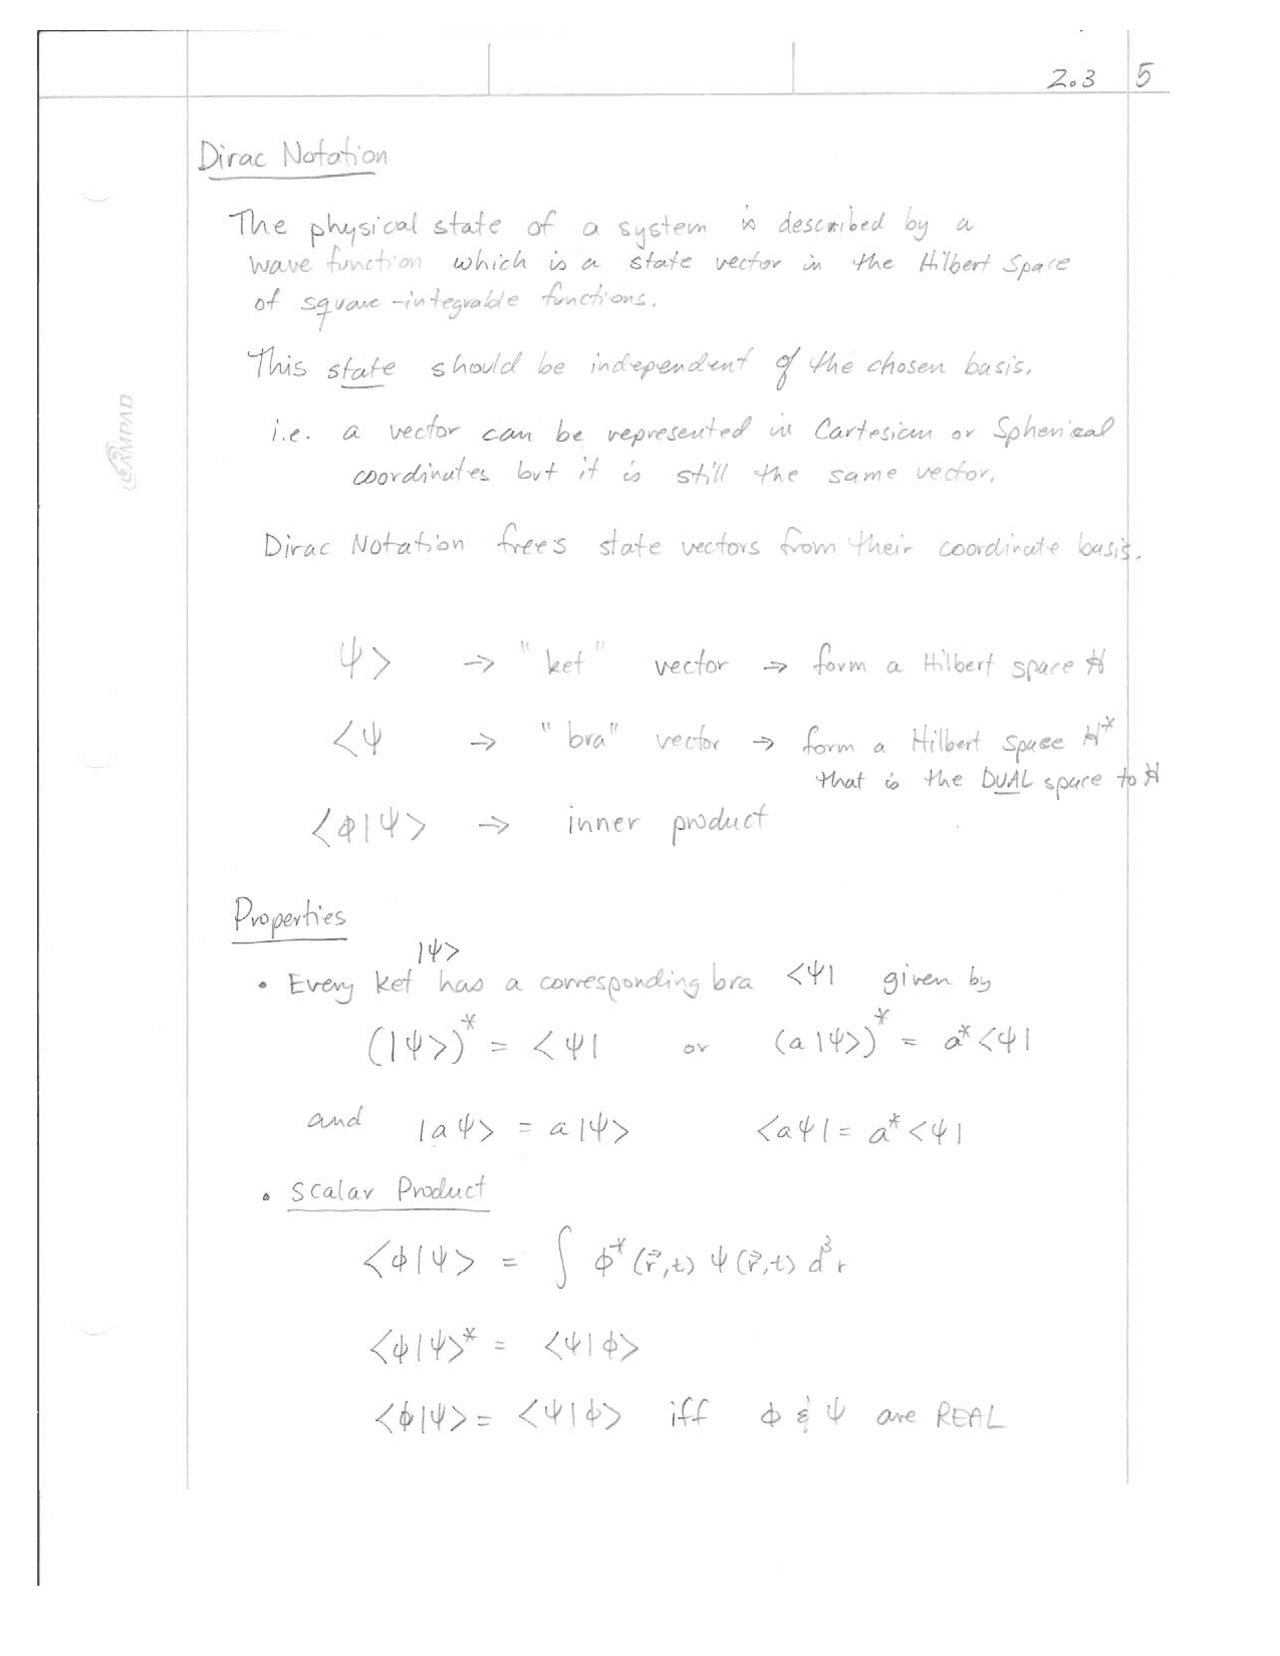 2.3 5
Dirac Notation
The physical state of a system is described by a
wave function which is a state vector in the Hilbert Space
of square-integrable functions.
This state should be independent of the chosen basis.
i.e. a vector can be represented in Cartesian or Spherical
coordinates but it is still the same vector.
Dirac Notation frees state vectors from their coordinate basis.
AMPAD
ψ> → "ket" vector ⇒ form a Hilbert space H
<ψ → "bra" vector ⇒ form a Hilbert space H*
that is the DUAL space to H
<φ|ψ> → inner product
Properties
|ψ>
• Every ket has a corresponding bra <ψ| given by
(|ψ>)* = <ψ| or (a|ψ>)* = a*<ψ|
and |aψ> = a|ψ> <aψ| = a*<ψ|
• Scalar Product
<φ|ψ> = ∫ φ*(r⃗,t) ψ(r⃗,t) d³r
<φ|ψ>* = <ψ|φ>
<φ|ψ> = <ψ|φ> iff φ & ψ are REAL